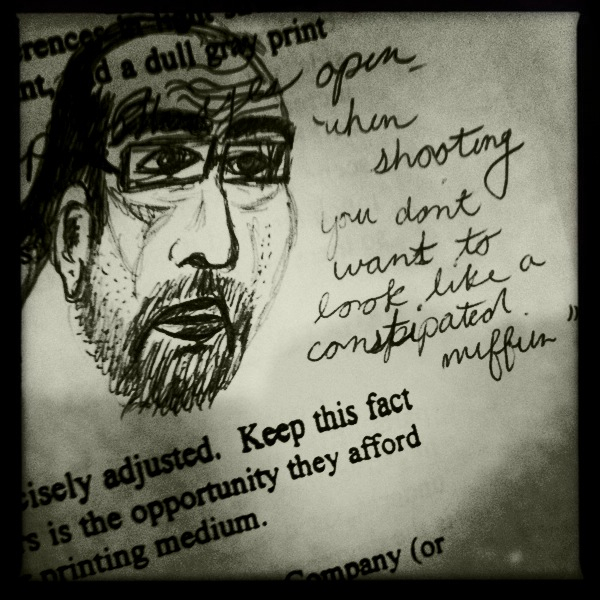 erences in light
nt, and a dull gray print
eyes open
when
shooting
you don't
want to
look like a
constipated
muffin"
cisely adjusted. Keep this fact
rs is the opportunity they afford
printing medium.
Company (or